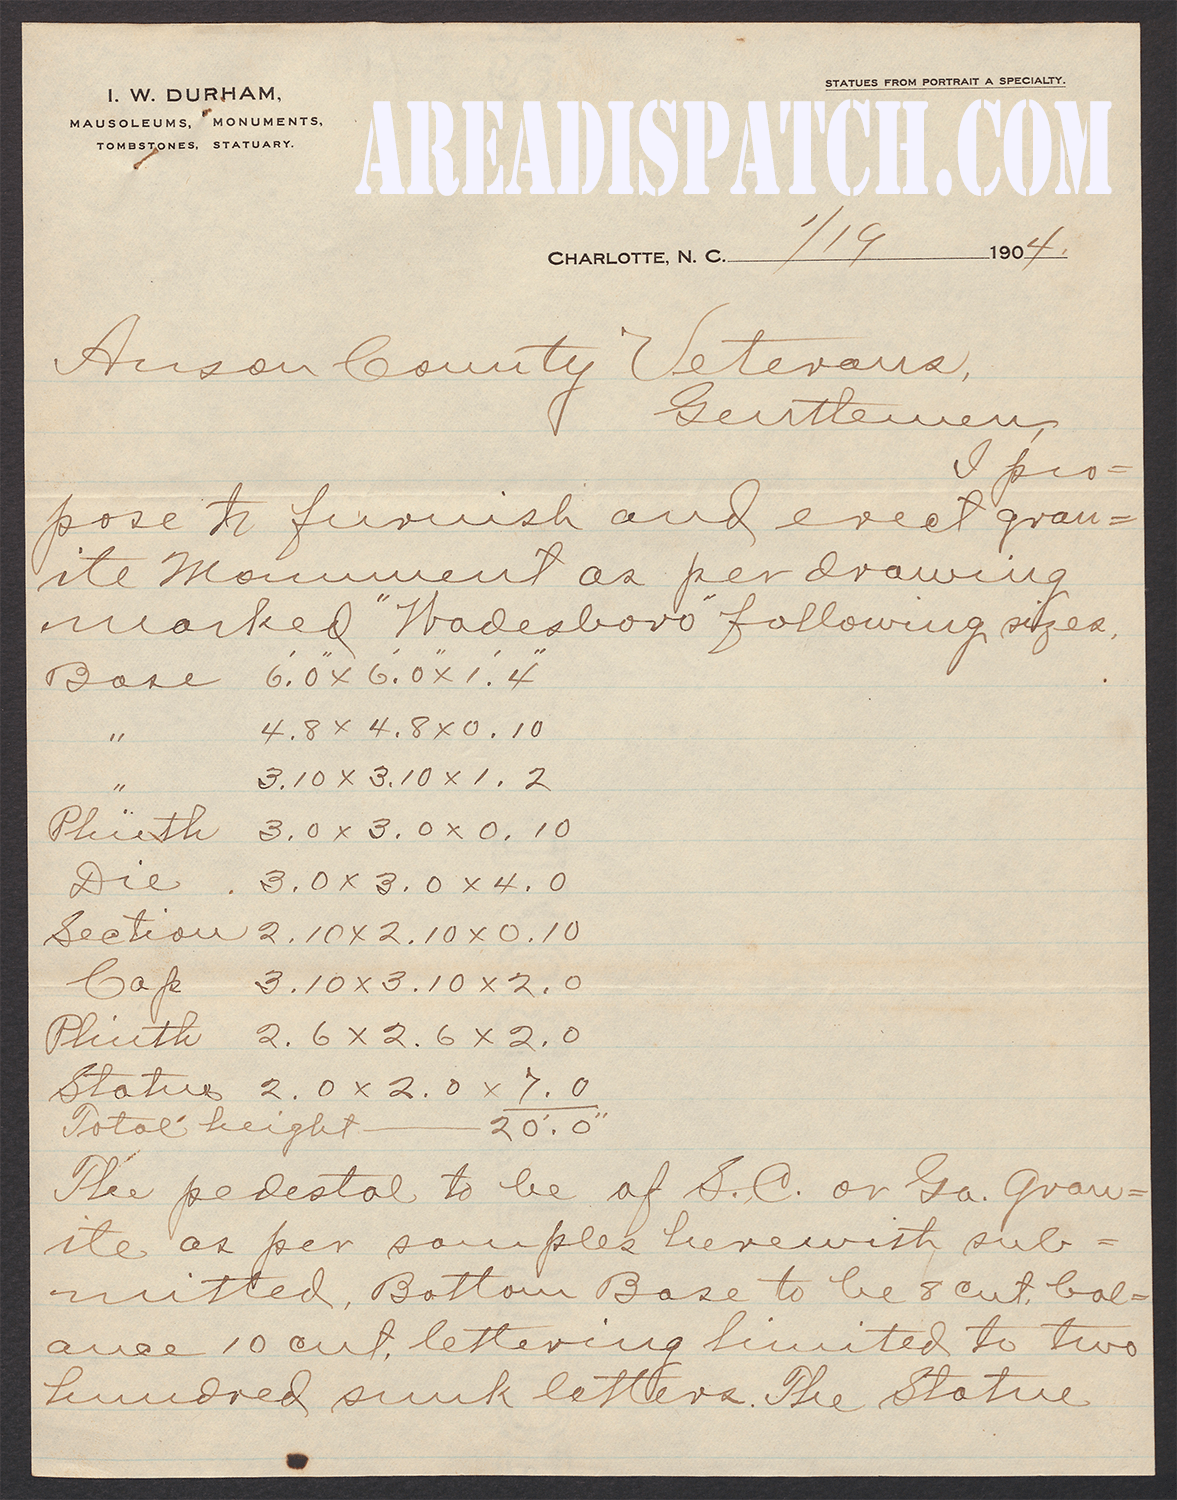 I. W. DURHAM,
MAUSOLEUMS, MONUMENTS,
TOMBSTONES, STATUARY.
STATUES FROM PORTRAIT A SPECIALTY.
AREADISPATCH.COM
CHARLOTTE, N. C. 1/19 1904.
Anson County Veterans,
Gentlemen,
I pro=
pose to furnish and erect gran=
ite Monument as per drawing
marked "Wadesboro" following sizes.
Base 6'.0" x 6'.0" x 1'.4"
" 4.8 x 4.8 x 0.10
" 3.10 x 3.10 x 1.2
Plinth 3.0 x 3.0 x 0.10
Die 3.0 x 3.0 x 4.0
Section 2.10 x 2.10 x 0.10
Cap 3.10 x 3.10 x 2.0
Plinth 2.6 x 2.6 x 2.0
Statue 2.0 x 2.0 x 7.0
Total height — 20'.0"
The pedestal to be of S.C. or Ga. Gran=
ite as per samples herewith sub=
mitted, Bottom Base to be 8 cut, bal=
ance 10 cut, lettering limited to two
hundred sunk letters. The Statue